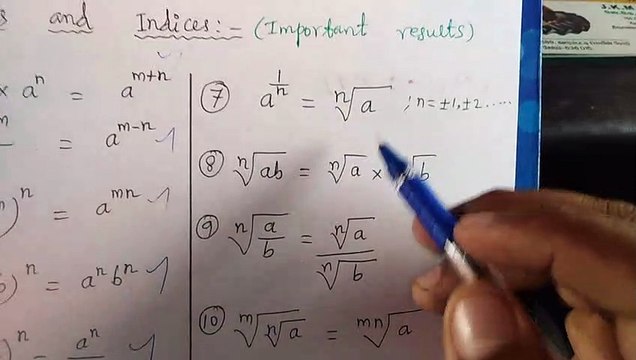 and Indices:- (Important results)
× aⁿ = a^{m+n}
= a^{m-n}
)ⁿ = a^{mn}
)ⁿ = aⁿbⁿ
= aⁿ
⑦ a^{1/n} = ⁿ√a ; n = ±1, ±2 .....
⑧ ⁿ√ab = ⁿ√a × √b
⑨ ⁿ√(a/b) = ⁿ√a / ⁿ√b
⑩ ᵐ√(ⁿ√a) = ᵐⁿ√a